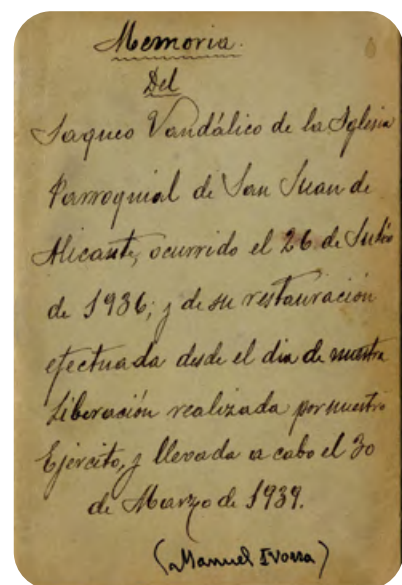 Memoria.
Del
Saqueo Vandálico de la Iglesia
Parroquial de San Juan de
Alicante, ocurrido el 26 de Julio
de 1936; y de su restauración
efectuada desde el dia de nuestra
Liberación realizada por nuestro
Ejército, y llevada a cabo el 30
de Marzo de 1939.
(Manuel Ivorra)